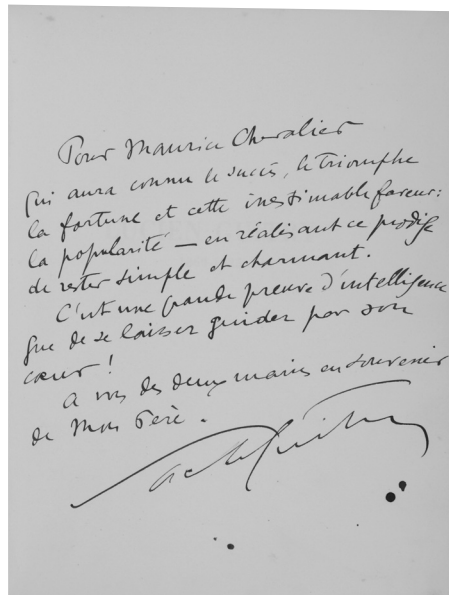 Pour Maurice Chevalier
qui aura connu le succès, le triomphe
la fortune et cette inestimable faveur :
la popularité — en réalisant ce prodige
de rester simple et charmant.
C'est une grande preuve d'intelligence
que de se laisser guider par son
cœur !
A vos des deux mains en souvenir
de Mon Père.
Sacha Guitry